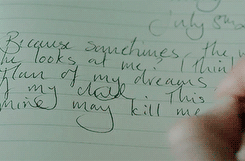 July 8th
Because sometimes, the
he looks at me, I think
of my dreams
of my dad. This
mine may kill me